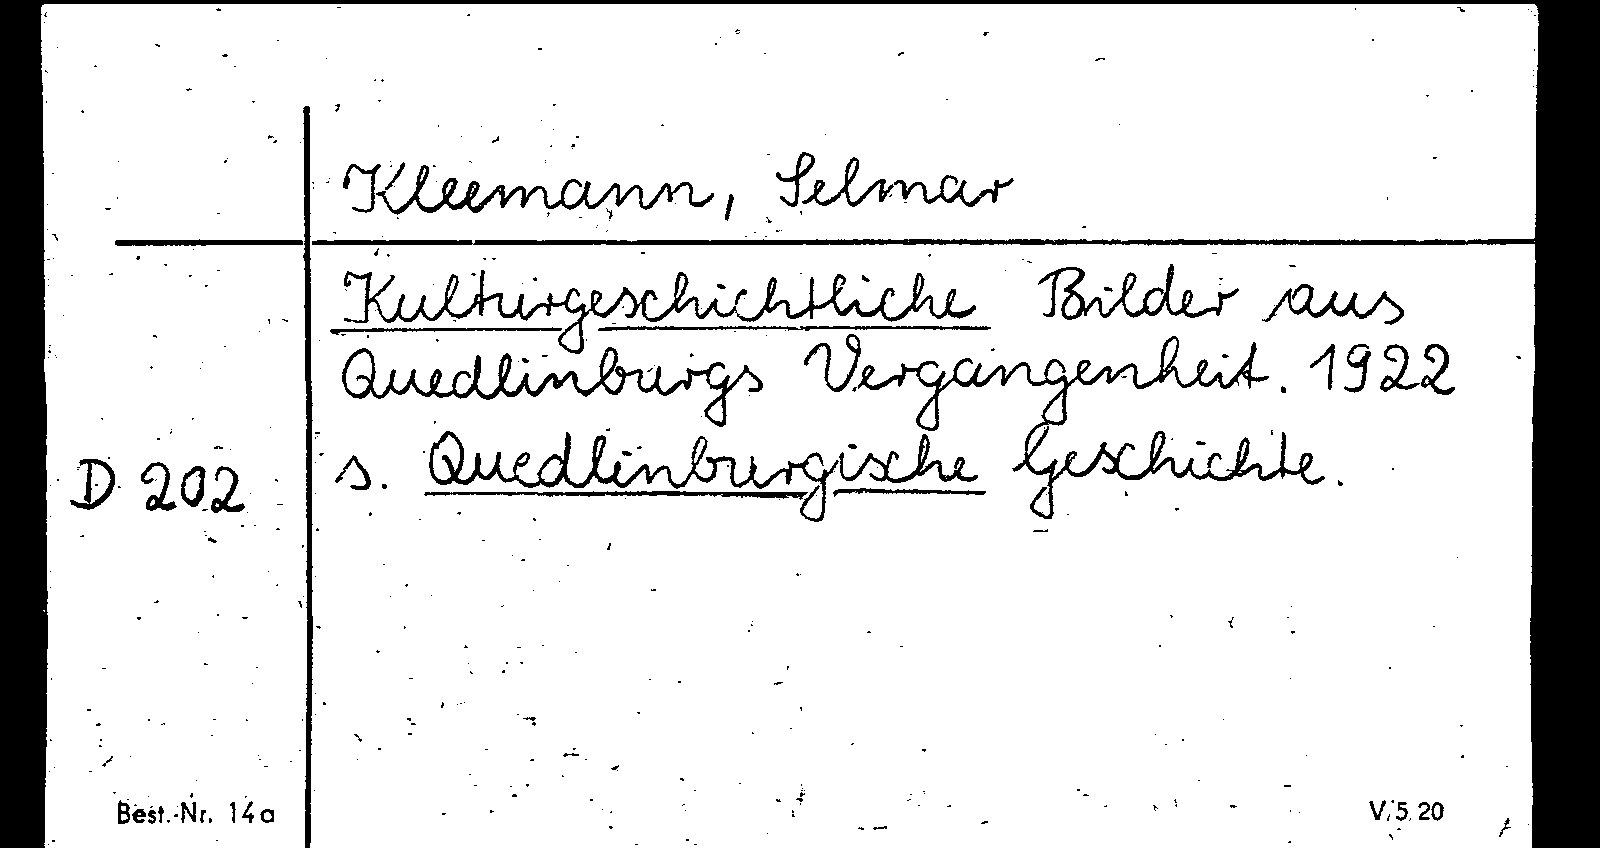 Kleemann, Selmar
Kulturgeschichtliche Bilder aus
Quedlinburgs Vergangenheit. 1922
D 202 s. Quedlinburgische Geschichte.
Best.-Nr. 14a V/5 20